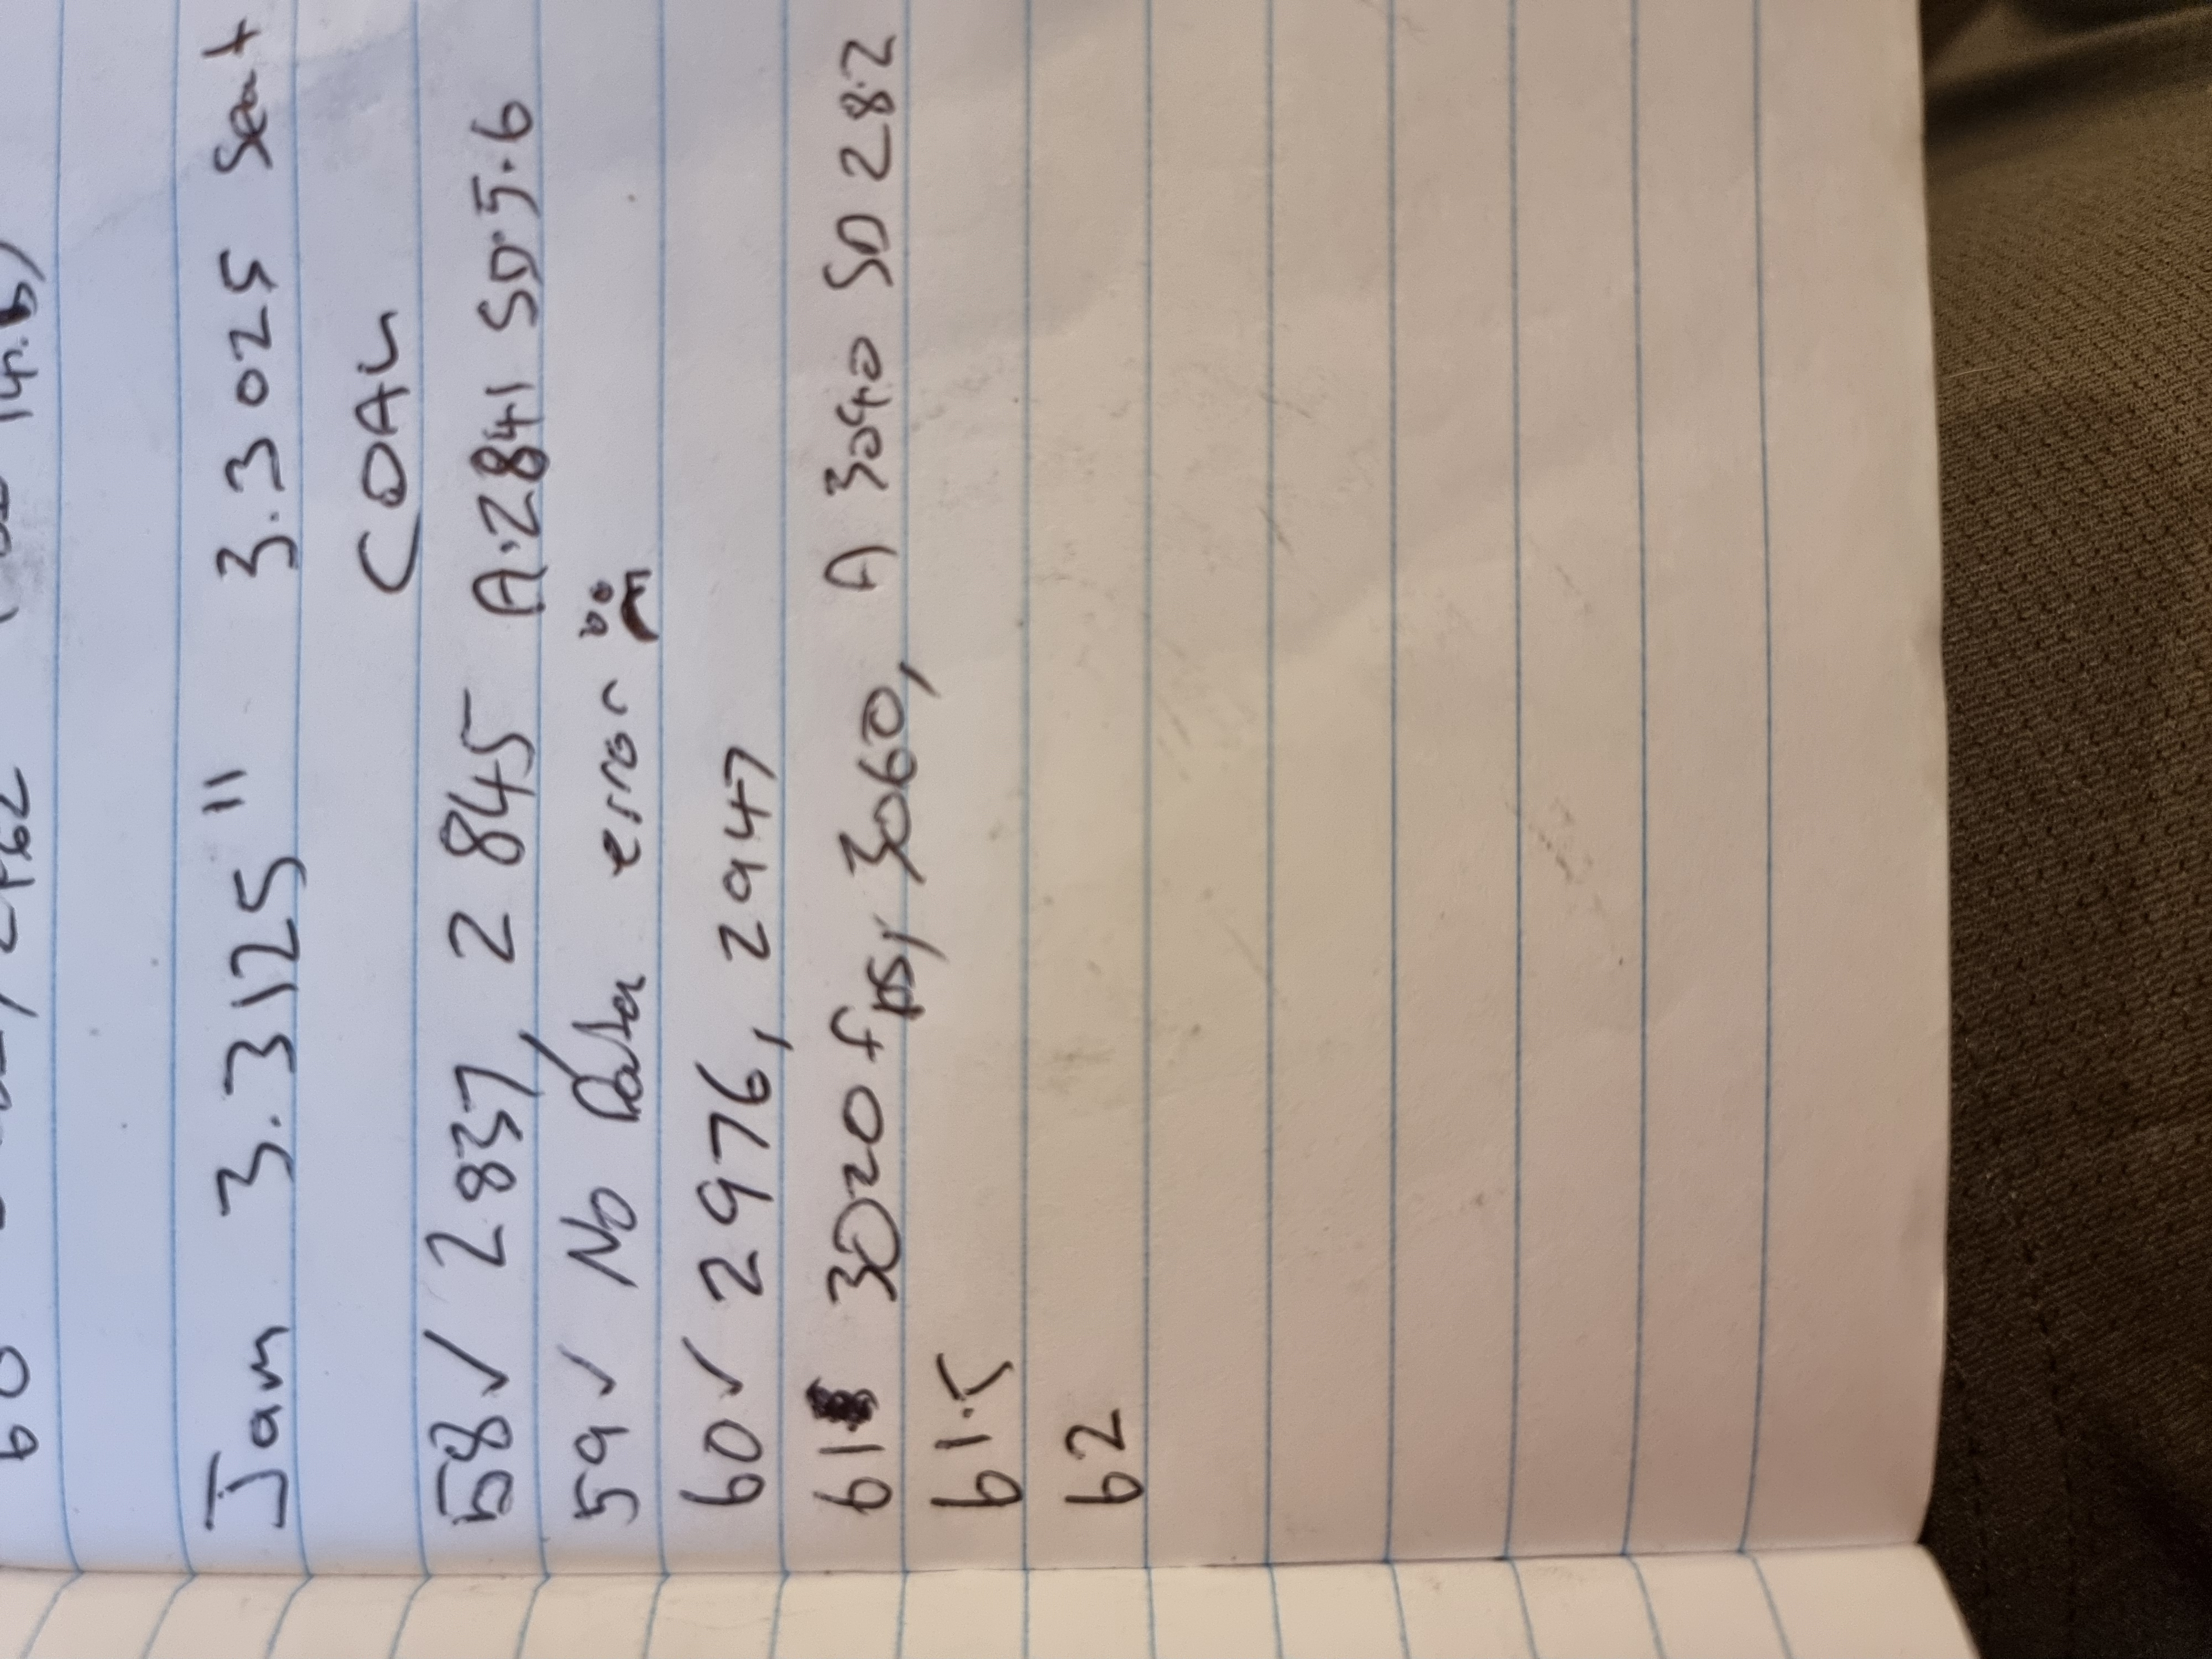 60
Jam 3.3125" 3.3025 Seat
COAL
58✓ 2837, 2845 A.2841 SD.5.6
59✓ No Data error
60✓ 2976, 2947
61 3020 fps, 3060, A 3040 SD 28.2
61.5
62